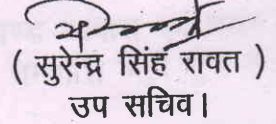 ( सुरेन्द्र सिंह रावत )
उप सचिव।